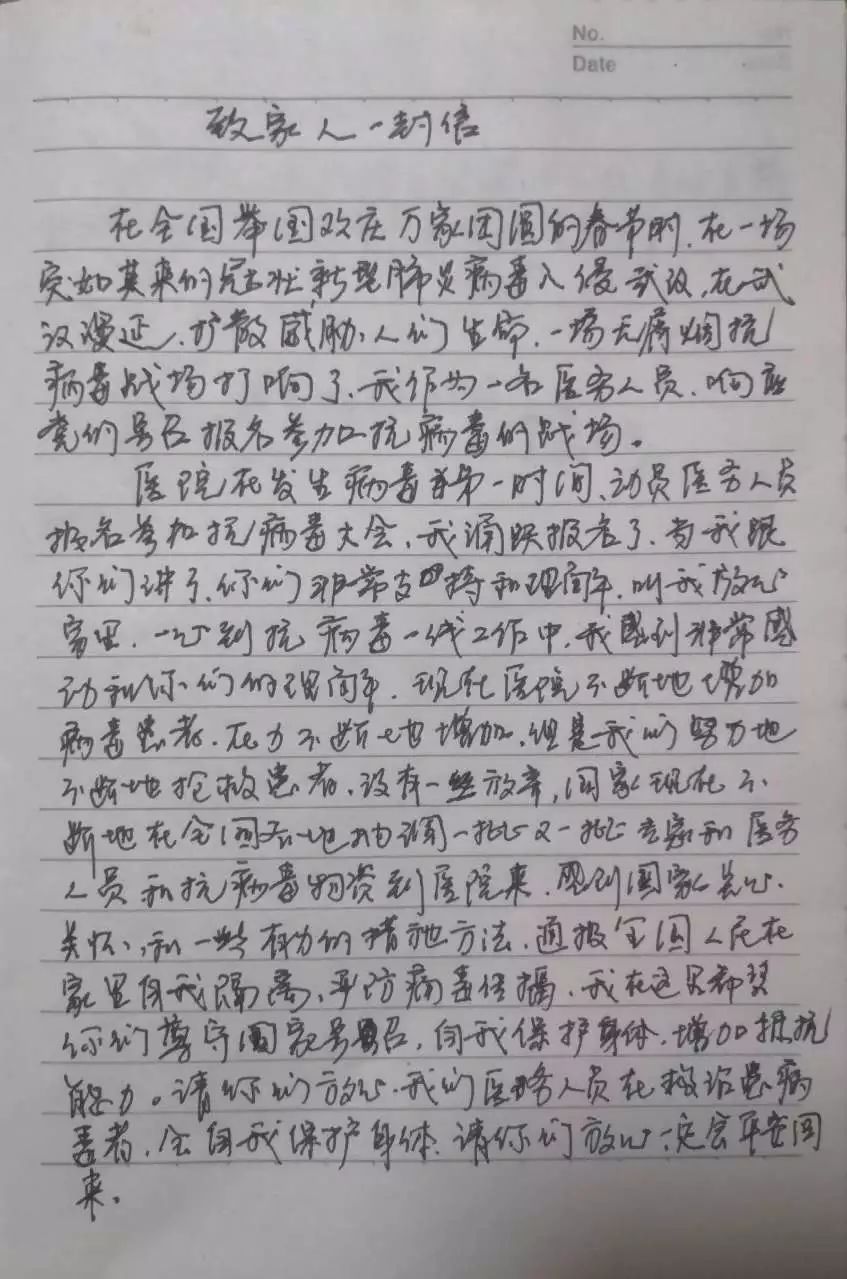 No.
Date
致家人一封信
在全国举国欢庆万家团圆的春节时,在一场
突如其来的冠状新型肺炎病毒入侵武汉,在武
汉漫延、扩散威胁、人们生命,一场无硝烟抗
病毒战场打响了、我作为一名医务人员、响应
党的号召报名参加抗病毒的战场。
医院在发生病毒第一时间、动员医务人员
报名参加抗病毒大会、我涌跃报名了、当我跟
你们讲了、你们非常支持和理解、叫我放心
家里、一心到抗病毒一线工作中、我感到非常感
动和你们的理解、现在医院不断地增加
病毒患者、压力不断地增加、但是我们努力地
不断地抢救患者、没有一些放弃,国家现在不
断地在全国各地抽调一批又一批专家和医务
人员和抗病毒物资到医院来、感到国家关心、
关怀、和一些有力的措施方法、通报全国人民在
家里自我隔离、严防病毒传播、我在这里都望
你们尊守国家号召,自我保护身体、增加抵抗
能力。请你们放心、我们医务人员在救治患病
毒者、会自我保护身体、请你们放心一定会平安回
来。